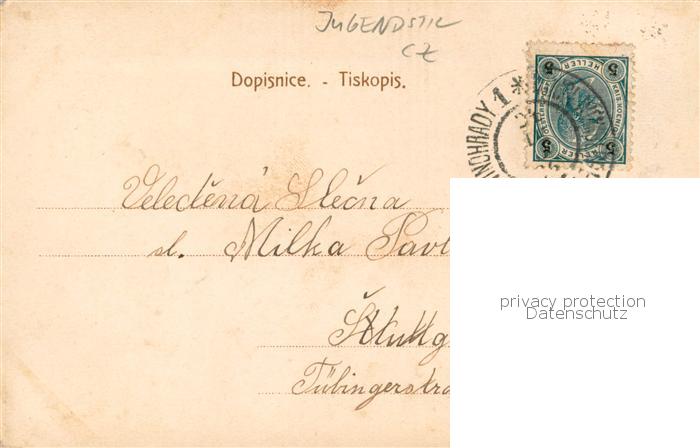 JUGENDSTIL
CZ
Dopisnice. - Tiskopis.
5 HELLER 5
5 5
VINOHRADY 1 *
Veleděná Slečna
sl. Milka Pavl
Štuttg
Tübingerstra
privacy protection
Datenschutz